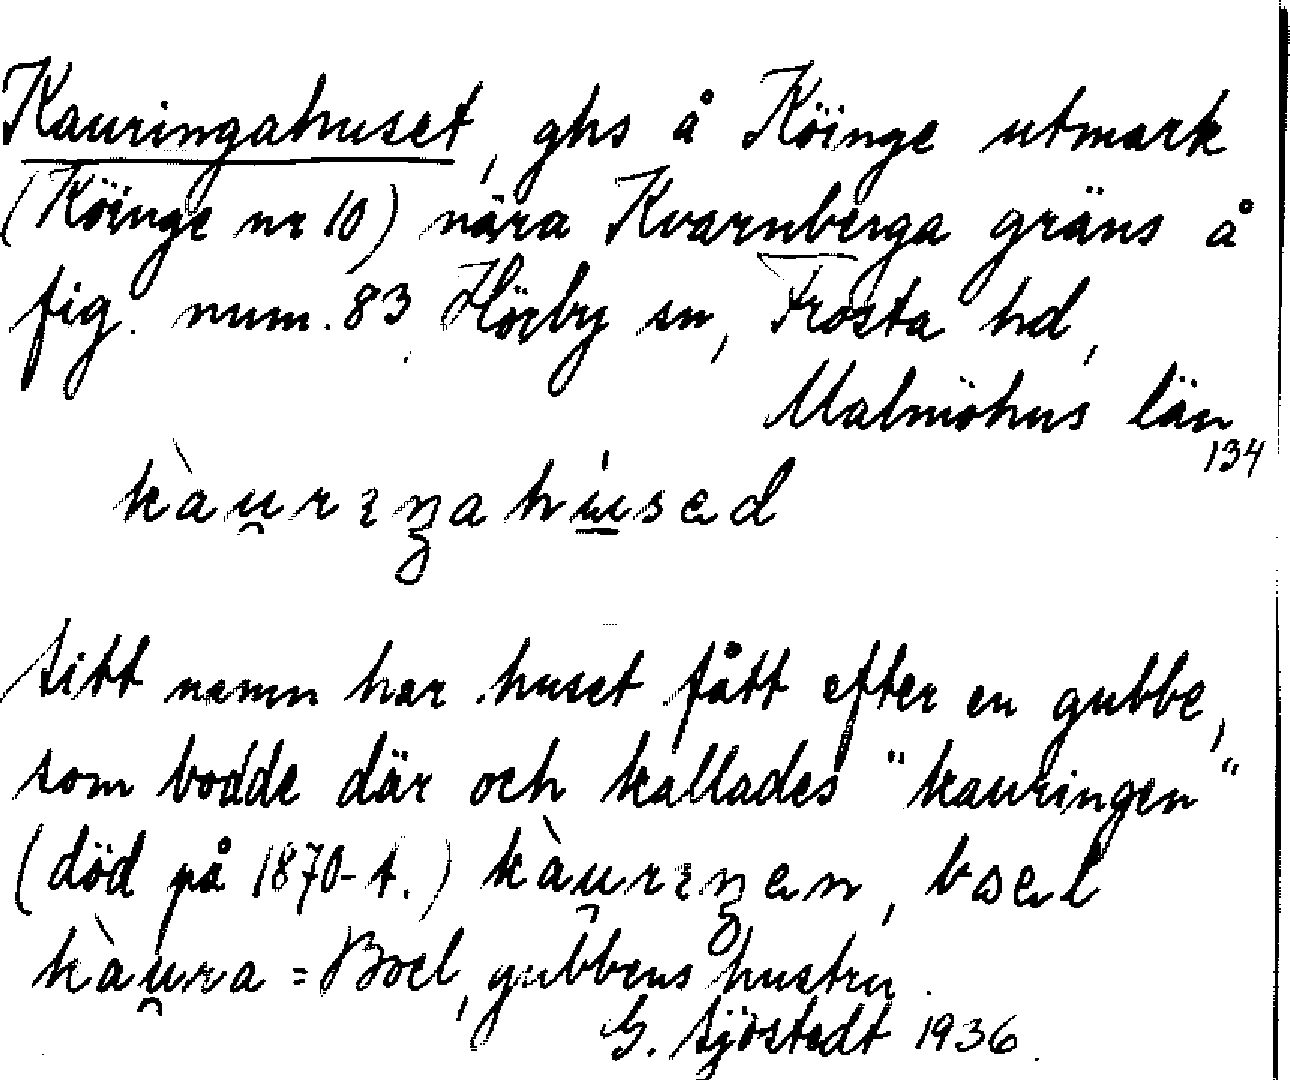 Kauringahuset, ghs å Köinge utmark
(Köinge nr 10) nära Kvarnberga gräns å
fig. num. 83, Hörby sn, Frosta hd,
Malmöhus län
134
Sitt namn har huset fått efter en gubbe,
som bodde där och kallades "kauringen"
(död på 1870-t.)
kàu̯ra = Boel, gubbens hustru.
G. Sjöstedt 1936.